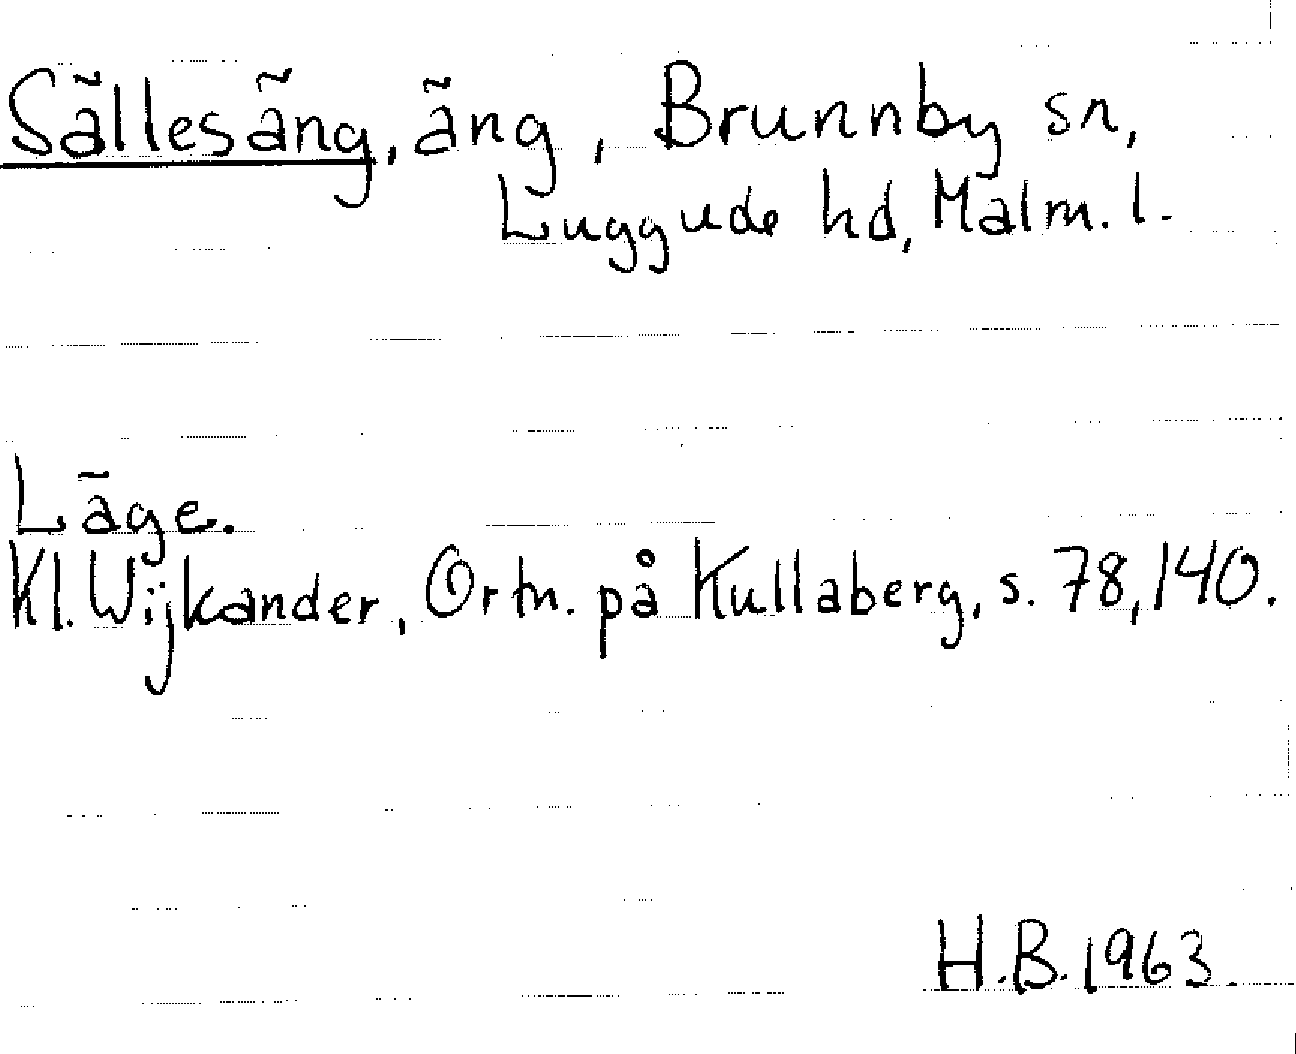 Sällesäng, äng, Brunnby sn,
Luggude hd, Malm. l.
Läge.
Kl. Wijkander, Ortn. på Kullaberg, s. 78, 140.
H.B. 1963.